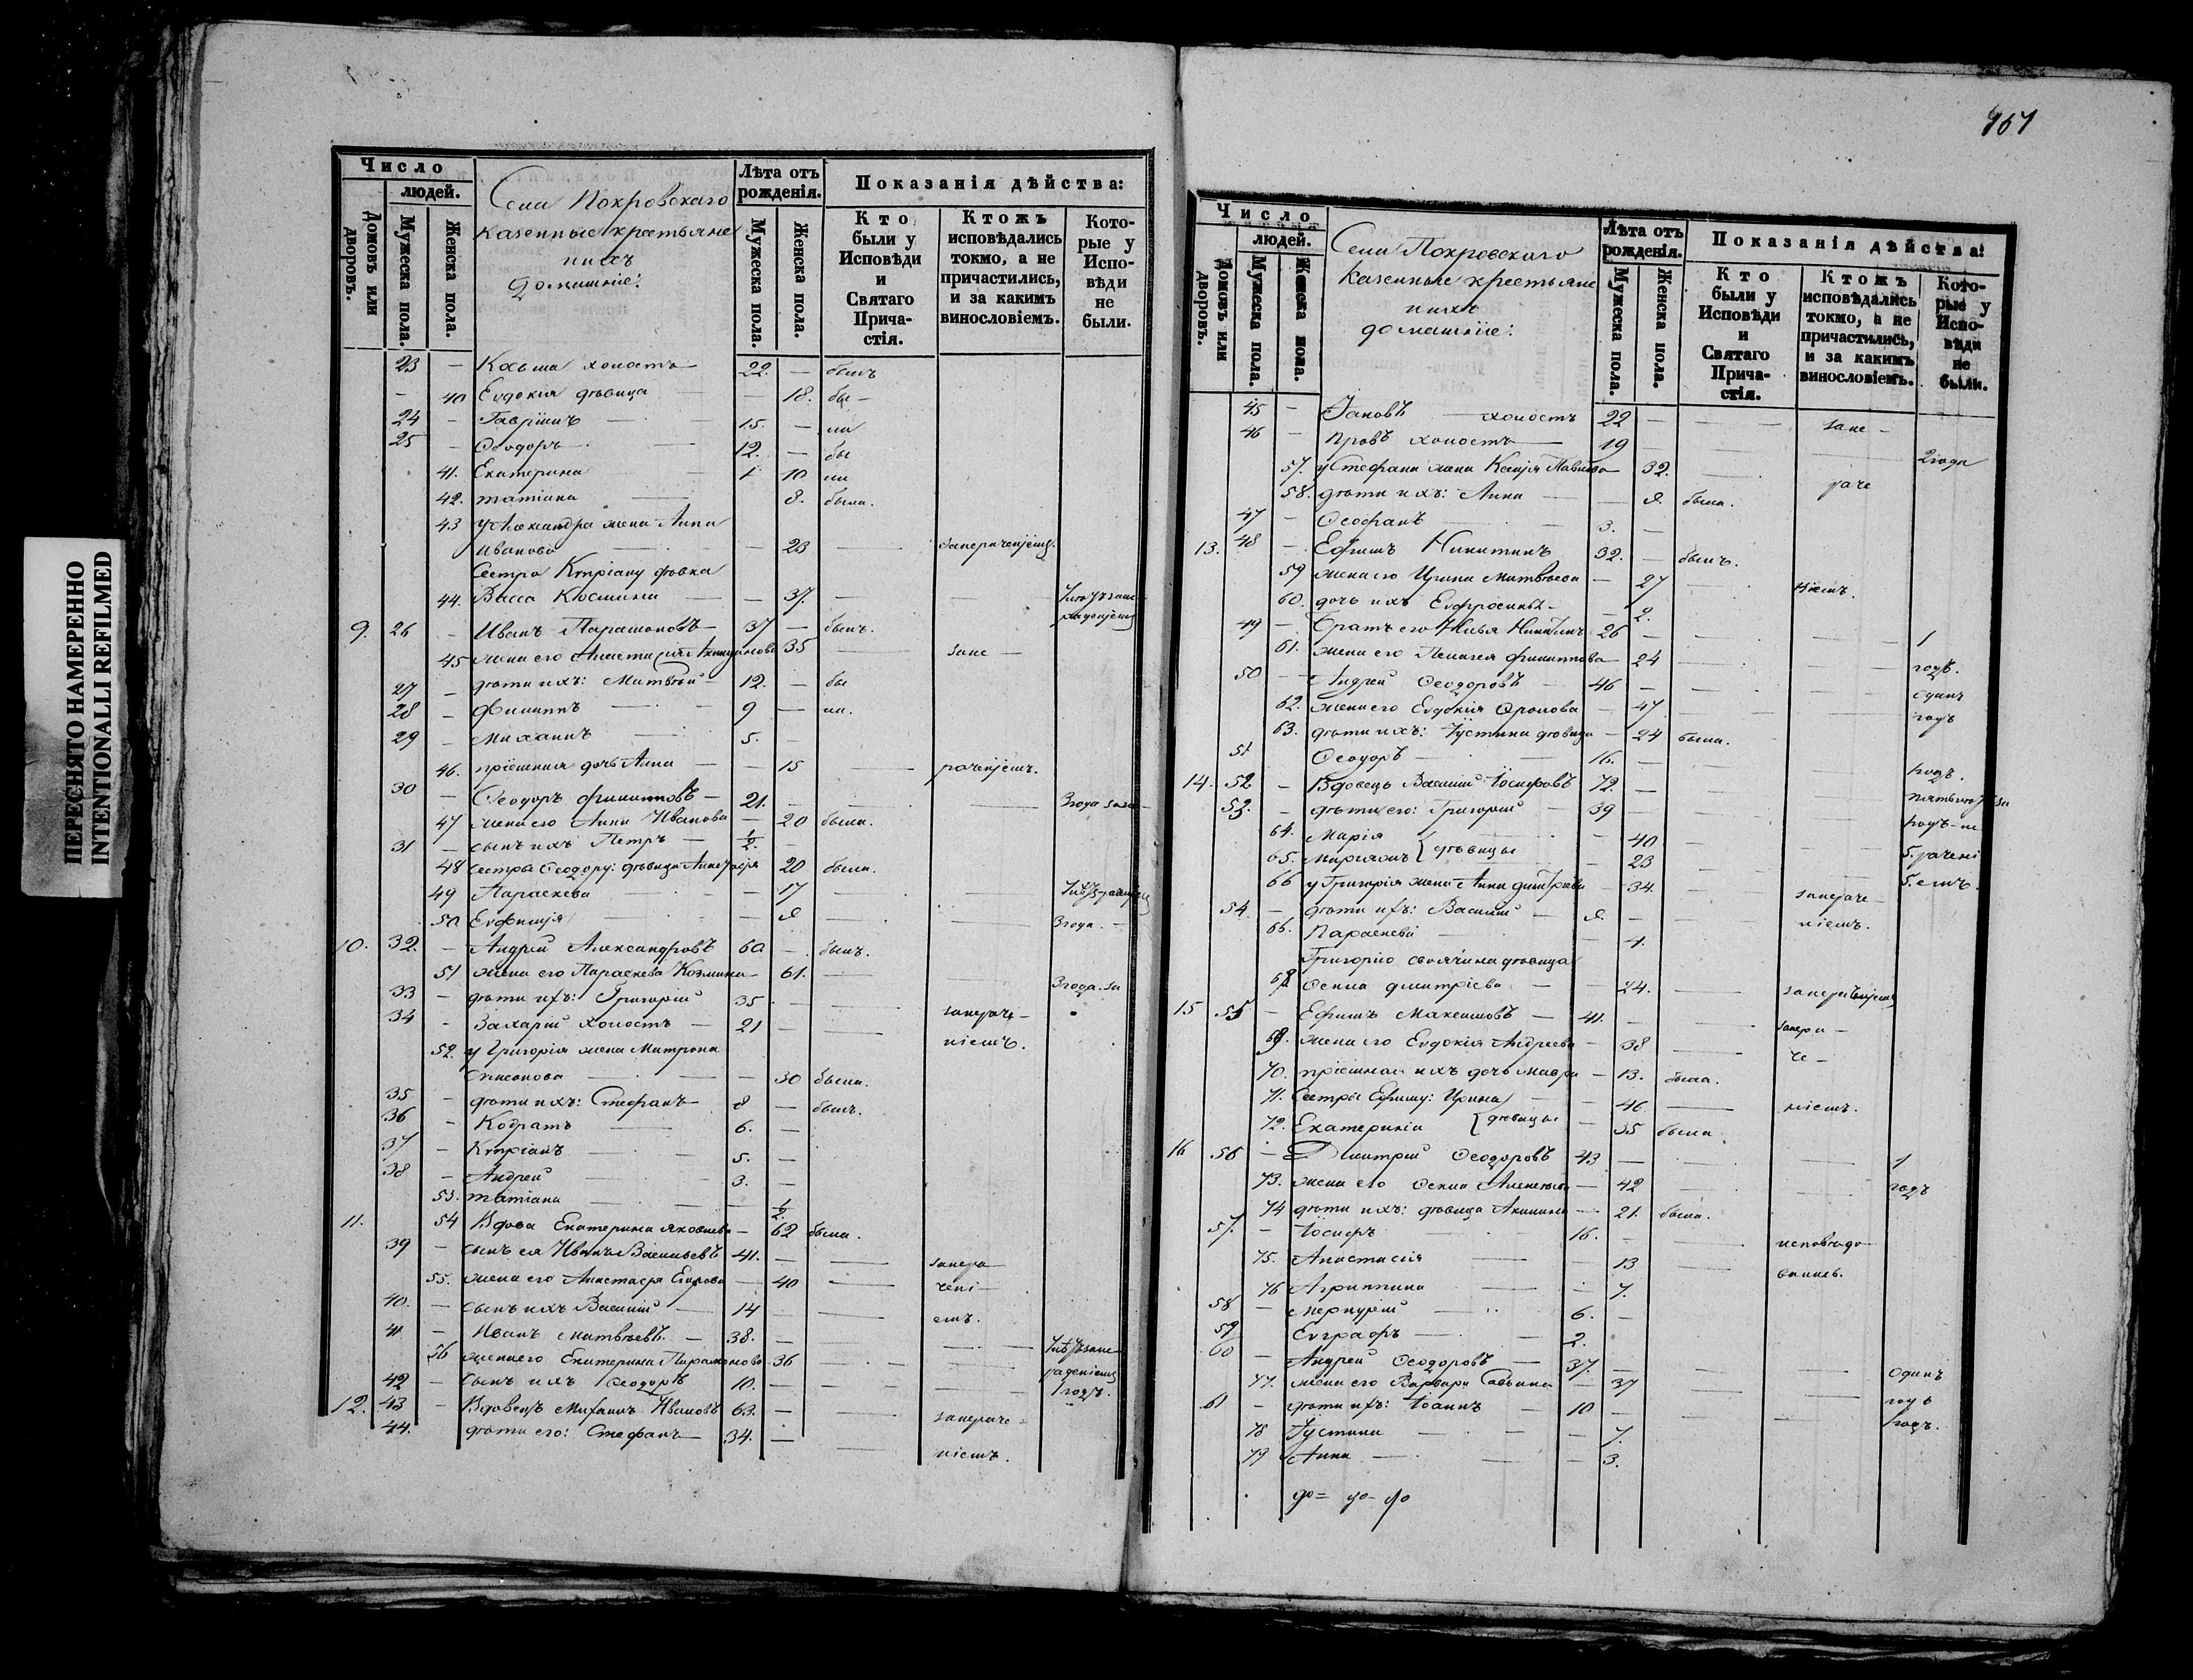 ПЕРЕСНЯТО НАМЕРЕННО
INTENTIONALLI REFILMED
Число
людей.
Домовъ или дворовъ.
Мужеска пола.
Женска пола.
Села Покровскаго
казенные крестьяне
и ихъ
домашніе:
Лѣта отъ рожденія.
Мужеска пола.
Женска пола.
Показанія дѣйства:
Кто были у Исповѣди и Святаго Причастія.
Ктожъ исповѣдались токмо, а не причастились, и за какимъ винословіемъ.
Которые у Исповѣди не были.
23 — Косьма холостъ 22. — былъ
— 40 Евдокія дѣвица — 18. бы —
24 — Гавріилъ 15. — ли
25 — Ѳеодоръ 12. — бы
41. Екатерина 10 ли
42. Татіана 8. была.
43 у Александра жена Анна
Иванова — 23
Сестра Кипріану дѣвка
44. Васса Космина — 37.
9. 26 — Иванъ Парамоновъ — 37 — былъ.
45 жена его Анастасія 35 — зане —
27 — дѣти ихъ: Матвѣй — 12. — бы
28 — Филиппъ 9 — ли.
29 — Михаилъ 5. —
46. пріемная дочь Анна — 15
30 — Ѳеодоръ Филипповъ — 21. — 3 года
47 жена его Анна Иванова — 20 была.
31 — сынъ ихъ Петръ — 1/2. —
48 сестры Ѳеодору: дѣвица Анастасія 20 была.
49 Параскева — 17
50 Евфимія
3 года. —
10. 32. — Андрей Александровъ 60 — былъ.
51 жена его Параскева Козмина — 61. — 3 года. за
33 — дѣти ихъ: Григорій 35
34 — Захарій холостъ — 21 —
52. у Григорія жена Матрона
ніемъ.
Симеонова — 30 была.
35 — дѣти ихъ: Стефанъ — 8 — былъ.
36 — Кодратъ 6. —
37 — Кипріанъ 5. —
38 — Андрей 3. —
53. Татіана — 1/2.
11. 54 Вдова Екатерина Яковлева — 62 была.
39 — сынъ ея Иванъ Васильевъ 41. —
55. жена его Анастасія Егорова — 40
чені —
40. — сынъ ихъ Василій — 14 —
емъ.
41 — Иванъ Матвѣевъ. — 38. —
56 жена его Екатерина Парамонова 36
42 — сынъ ихъ Ѳеодоръ 10. — 1 годъ.
12. 43 — Вдовецъ Михаилъ Ивановъ 63. —
44. дѣти его: Стефанъ — 34. —
ніемъ.
Число
людей.
Домовъ или дворовъ.
Мужеска пола.
Женска пола.
Села Покровскаго
казенные крестьяне
и ихъ
домашніе:
Лѣта отъ рожденія.
Мужеска пола.
Женска пола.
Показанія дѣйства:
Кто были у Исповѣди и Святаго Причастія.
Ктожъ исповѣдались токмо, а не причастились, и за какимъ винословіемъ.
Которые у Исповѣди не были.
45 — Іаковъ — холостъ 22 — зане —
46 — Провъ холостъ — 19 — 2 года
57. у Стефана жена Ксенія Павлова 32.
58. дѣти ихъ: Анна была.
47 — Ѳеофанъ 3. —
13. 48 — Ефимъ Никитинъ 32. — былъ.
59 жена его Ирина Матвѣева — 27 — ніемъ.
60. дочь ихъ Евфросинья — 2.
49 — Братъ его Илья Никитинъ 26 — 1
61. жена его Пелагея Филиппова — 24 — годъ.
50 — Андрей Ѳеодоровъ 46 — одинъ
62. жена его Евдокія Фролова — 47 — годъ
63. дѣти ихъ: Іустина дѣвица — 24 была.
51 Ѳеодоръ 16. — годъ.
14. 52 — Вдовецъ Василій Іосифовъ 72. —
53. — дѣти его: Григорій 39 —
64. Марія — 40
65. дѣвицы 23
66 у Григорія жена Анна Дмитріева — 34.
54. — дѣти ихъ: Василій ніемъ.
66. Параскева 4.
Григорію своячина дѣвица
Ѳекла Дмитріева — 24.
15 55 — Ефимъ Максимовъ — 41. —
69. жена его Евдокія Андреева — 38 — че —
70. пріемная ихъ дочь Мавра — 13. была.
71. Сестры Ефиму: Ирина — 46. — ніемъ.
72. Екатерина дѣвицы — 35 была.
16 56 — Дмитрій Ѳеодоровъ 43 — 1
73. жена его Ѳекла — 42 — годъ
74 дѣти ихъ: дѣвица Акилина — 21. была.
57. — Іосифъ 16. — исповѣдо-
75. Анастасія 13 — вались.
76 Агриппина 7.
58 — Меркурій 6. —
59 Евграфъ 2.
60 — Андрей Ѳеодоровъ 37. — одинъ
77. жена его Варвара — 37 — годъ
61 — дѣти ихъ: Іоаннъ — 10 — 1 годъ.
78 Іустина 7.
79 Анна — 3.